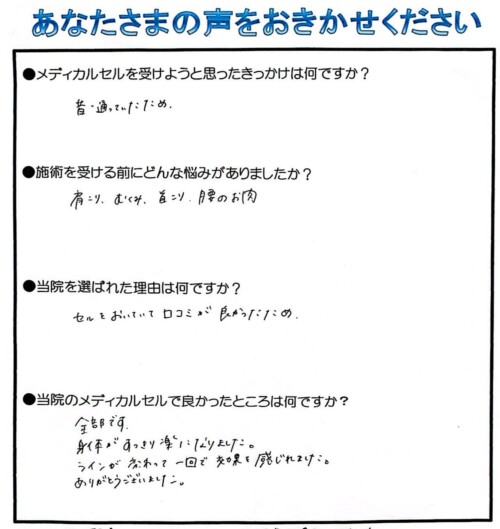 あなたさまの声をおきかせください
●メディカルセルを受けようと思ったきっかけは何ですか？
昔、通っていたため.
●施術を受ける前にどんな悩みがありましたか？
肩こり、むくみ、首こり、腰のお肉
●当院を選ばれた理由は何ですか？
セルをおいていて口コミが良かったため.
●当院のメディカルセルで良かったところは何ですか？
全部です.
身体がすっきり楽になりました。
ラインが変わって一回で効果を感じれました。
ありがとうございました。